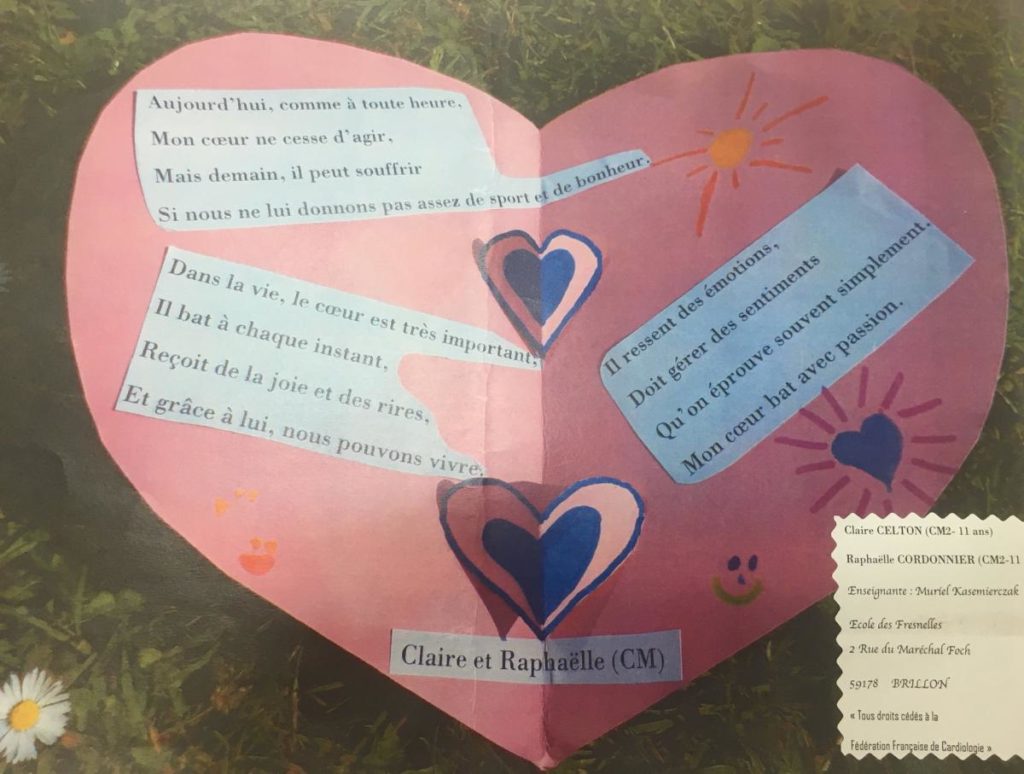 Aujourd'hui, comme à toute heure,
Mon cœur ne cesse d'agir,
Mais demain, il peut souffrir
Si nous ne lui donnons pas assez de sport et de bonheur.
Dans la vie, le cœur est très important,
Il bat à chaque instant,
Reçoit de la joie et des rires,
Et grâce à lui, nous pouvons vivre.
Il ressent des émotions,
Doit gérer des sentiments
Qu'on éprouve souvent simplement.
Mon cœur bat avec passion.
Claire et Raphaëlle (CM)
Claire CELTON (CM2- 11 ans)
Raphaëlle CORDONNIER (CM2-11
Enseignante : Muriel Kasemierczak
Ecole des Fresnelles
2 Rue du Maréchal Foch
59178 BRILLON
« Tous droits cédés à la
Fédération Française de Cardiologie »